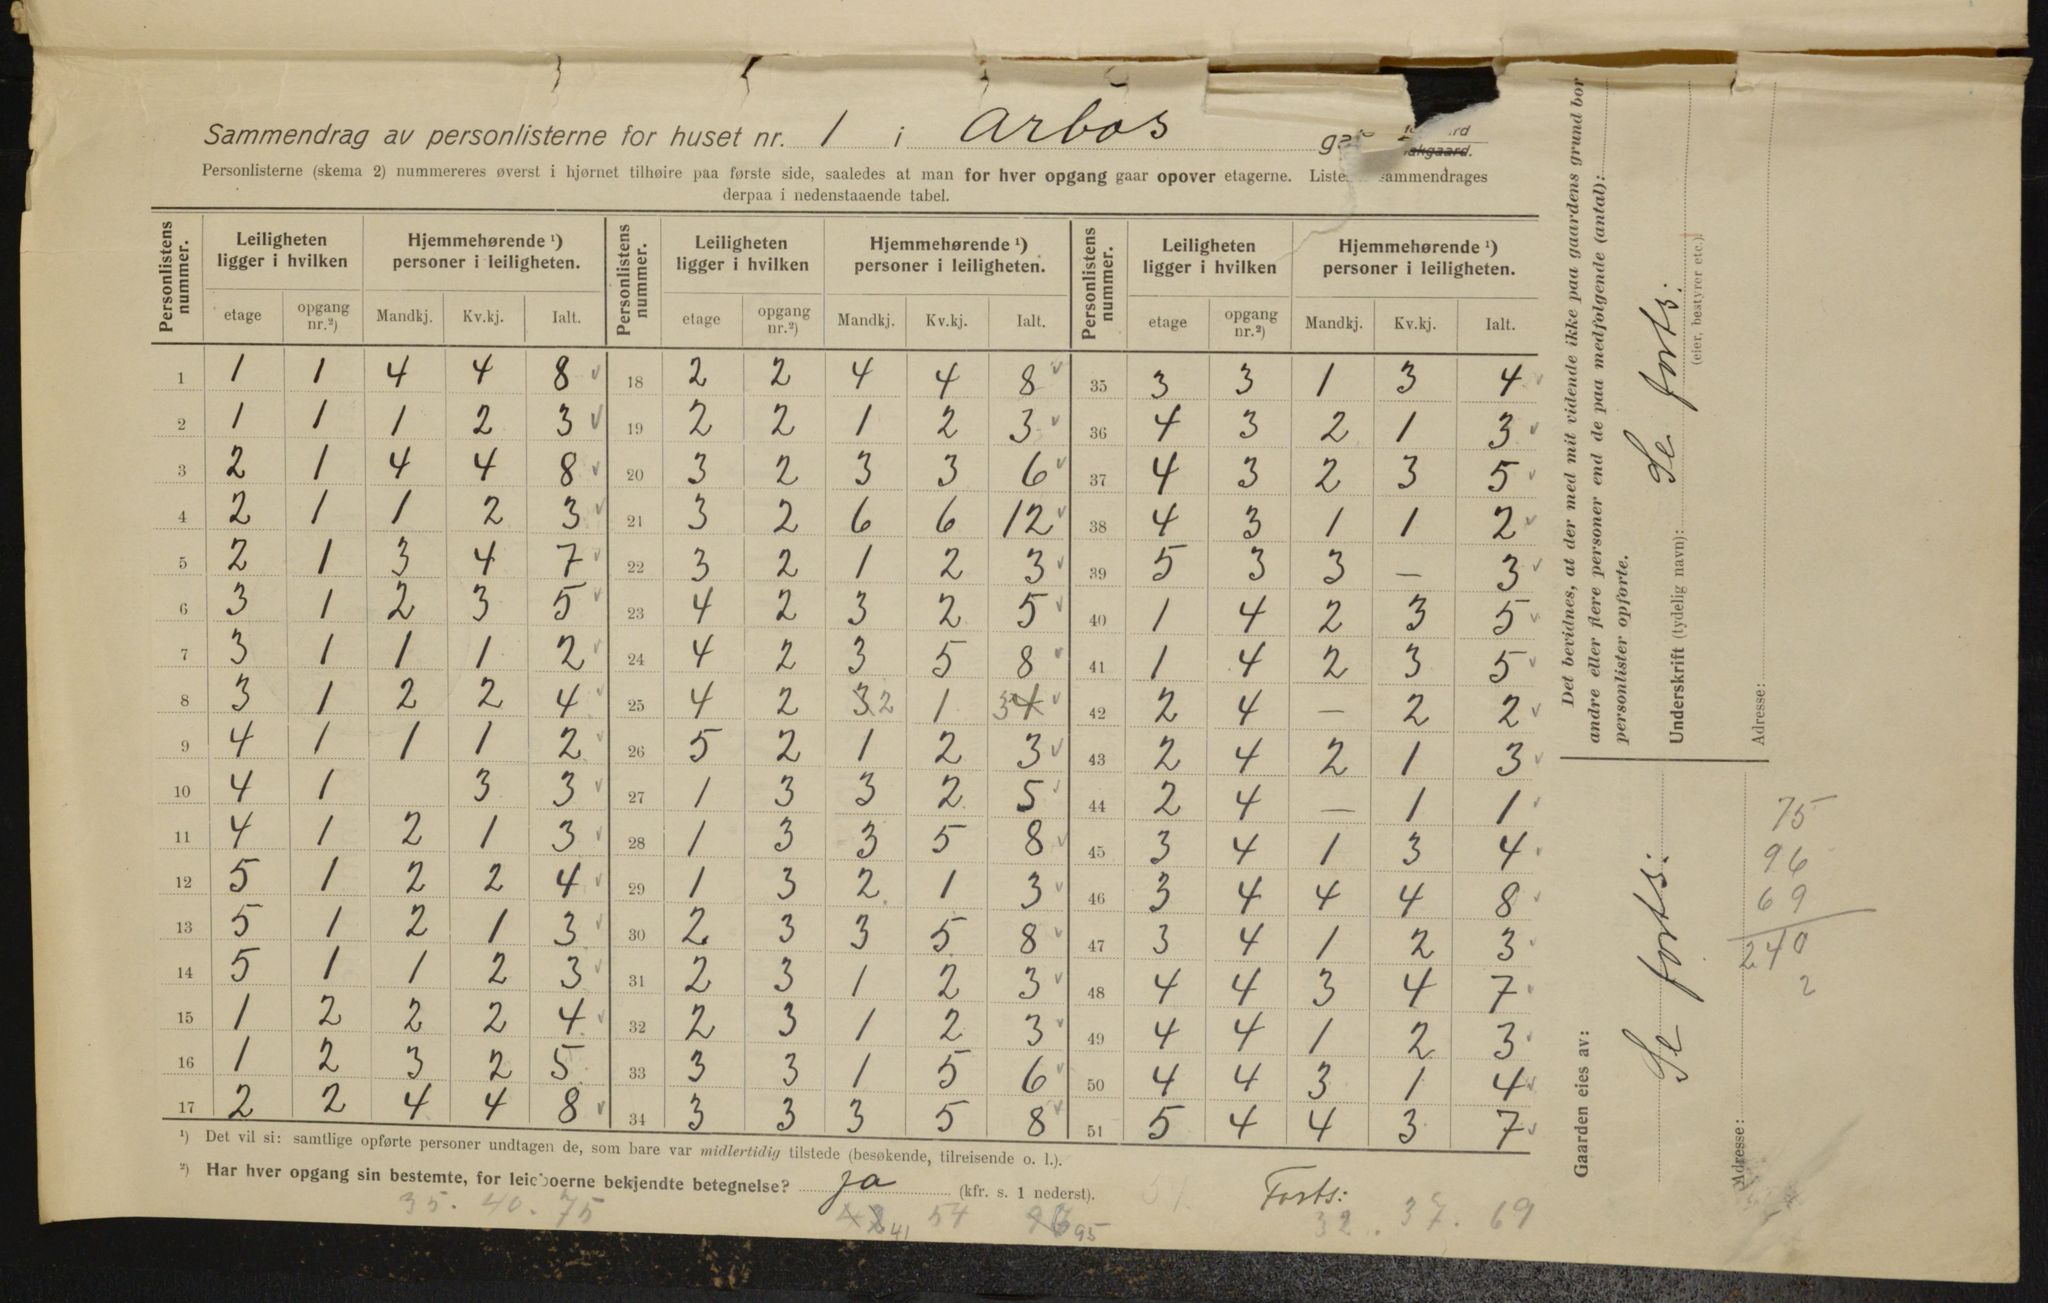 Sammendrag av personlisterne for huset nr. 1 i Arbos
Personlisterne (skema 2) nummereres øverst i hjørnet tilhøire paa første side, saaledes at man for hver opgang gaar opover etagerne. sammendrages
derpaa i nedenstaaende tabel.
Personlistens nummer. Leiligheten ligger i hvilken Hjemmehørende ¹) personer i leiligheten. Personlistens nummer. Leiligheten ligger i hvilken Hjemmehørende ¹) personer i leiligheten. Personlistens nummer. Leiligheten ligger i hvilken Hjemmehørende ¹) personer i leiligheten.
etage opgang nr.²) Mandkj. Kv.kj. Ialt. etage opgang nr.²) Mandkj. Kv.kj. Ialt. etage opgang nr.²) Mandkj. Kv.kj. Ialt.
1 1 1 4 4 8 18 2 2 4 4 8 35 3 3 1 3 4
2 1 1 1 2 3 19 2 2 1 2 3 36 4 3 2 1 3
3 2 1 4 4 8 20 3 2 3 3 6 37 4 3 2 3 5
4 2 1 1 2 3 21 3 2 6 6 12 38 4 3 1 1 2
5 2 1 3 4 7 22 3 2 1 2 3 39 5 3 3 — 3
6 3 1 2 3 5 23 4 2 3 2 5 40 1 4 2 3 5
7 3 1 1 1 2 24 4 2 3 5 8 41 1 4 2 3 5
8 3 1 2 2 4 25 4 2 3 2 1 3 4 42 2 4 — 2 2
9 4 1 1 1 2 26 5 2 1 2 3 43 2 4 2 1 3
10 4 1 3 3 27 1 3 3 2 5 44 2 4 — 1 1
11 4 1 2 1 3 28 1 3 3 5 8 45 3 4 1 3 4
12 5 1 2 2 4 29 1 3 2 1 3 46 3 4 4 4 8
13 5 1 2 1 3 30 2 3 3 5 8 47 3 4 1 2 3
14 5 1 1 2 3 31 2 3 1 2 3 48 4 4 3 4 7
15 1 2 2 2 4 32 2 3 1 2 3 49 4 4 1 2 3
16 1 2 3 2 5 33 3 3 1 5 6 50 4 4 3 1 4
17 2 2 4 4 8 34 3 3 3 5 8 51 5 4 4 3 7
¹) Det vil si: samtlige opførte personer undtagen de, som bare var midlertidig tilstede (besøkende, tilreisende o. l.).
²) Har hver opgang sin bestemte, for leieboerne bekjendte betegnelse? Ja (kfr. s. 1 nederst). Forts:
35. 40. 75 41 54 95 32. 37. 69
Det bevidnes, at der med mit vidende ikke paa gaardens grund bor
andre eller flere personer end de paa medfølgende (antal):
personlister opførte.
Underskrift (tydelig navn): Se forts:
(eier, bestyrer etc.)
Adresse:
Gaarden eies av: Se forts:
Adresse:
75
96
69
240
2